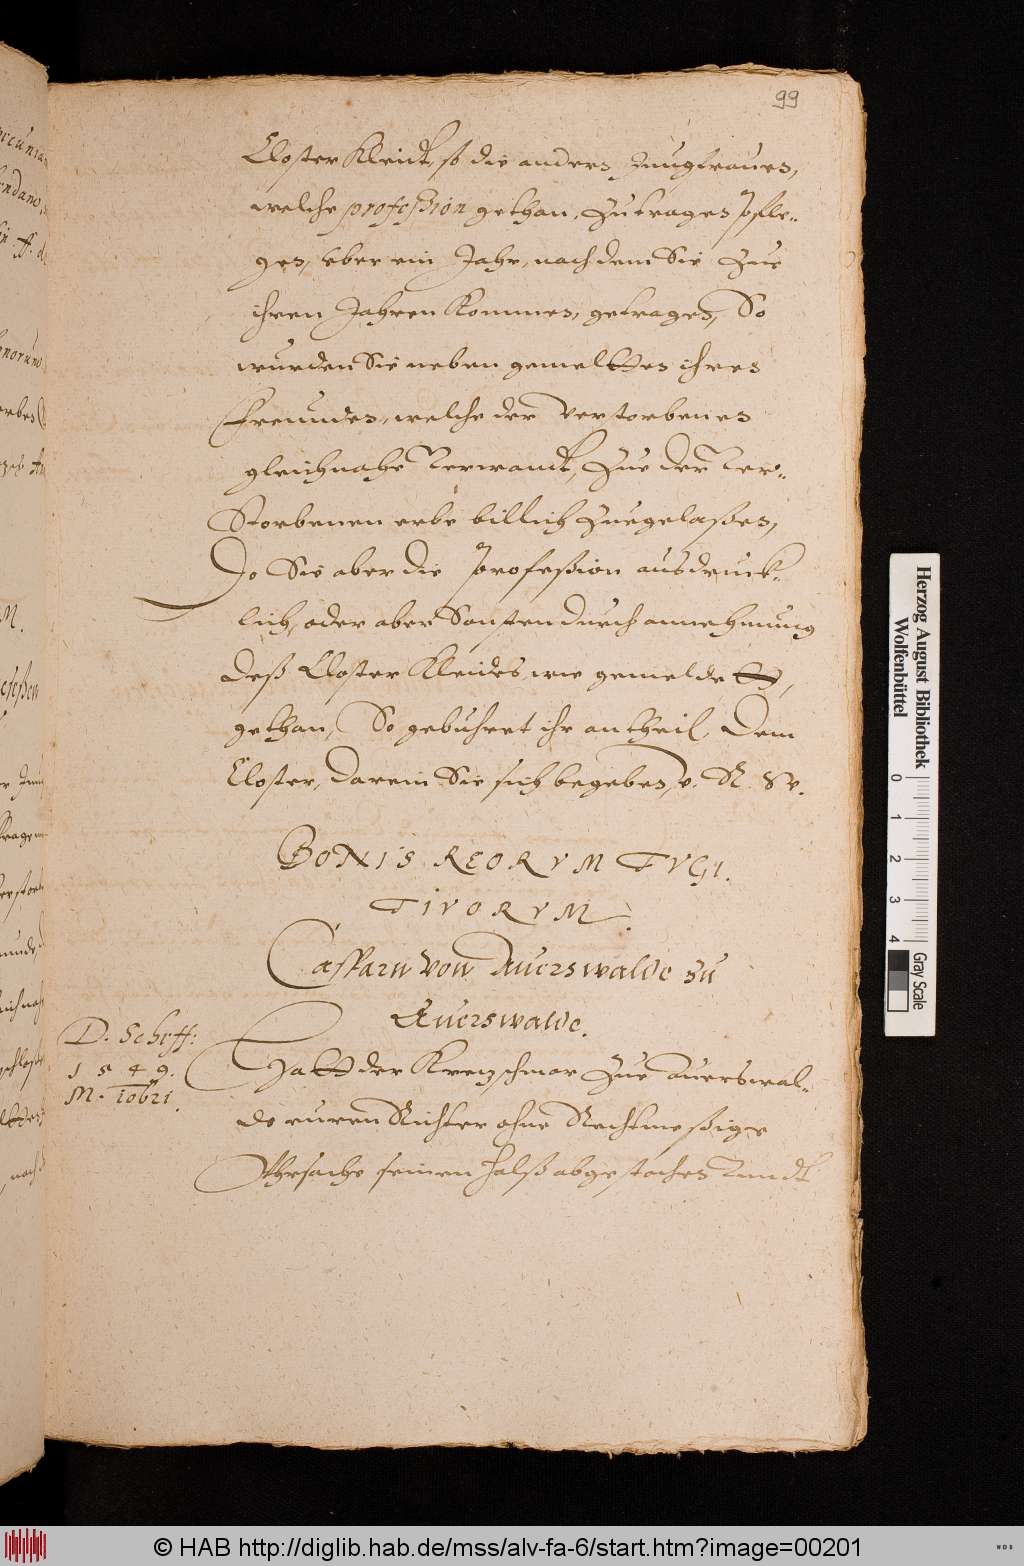 99
Closter Kleidt, so die andern Jungfrauen,
welche profeßion gethan, zutragen pfle-
gen, vber ein Jahr, nach dem Sie zue
ihren Jahren kommen, getragen, So
wurden Sie neben gemeltten ihren
Freunden, welche der verstorbenen
gleich nahe verwandt, zue der ver-
storbenen erbe billich zuegelaßen,
Do Sie aber die profeßion ausdruck-
lich, oder aber Sonsten durch annehmung
deß Closter Kleides, wie gemeldett,
gethan, So gebuhret ihr antheil, Dem
Closter, darein Sie sich begeben, v. R. w.
BONIS REORVM FVGI.
TIVORVM.
Casparn von Auerswalde zu
Auerswalde.
D. Scheff:
1549.
M. 10621.
Hatt der Kretzschmar zue auerswal-
de euren Richter ohne Rechtmeßige
Vhrsache seinen halß abgestochen vnndt
Herzog August Bibliothek
Wolfenbüttel
0 1 2 3 4
Gray Scale
© HAB http://diglib.hab.de/mss/alv-fa-6/start.htm?image=00201